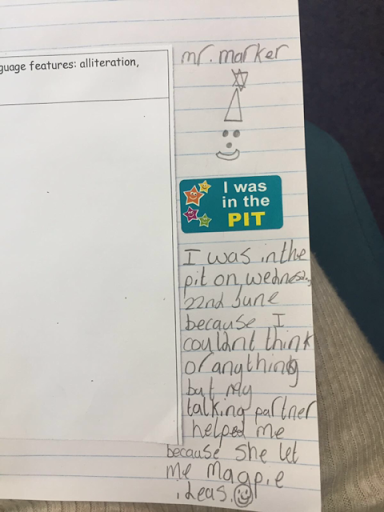 guage features: alliteration,
mr. marker
I was
in the
PIT
I was in the
pit on wednesday
22nd June
because I
couldnt think
of anything
but my
talking partner
helped me
because she let
me magpie
ideas.